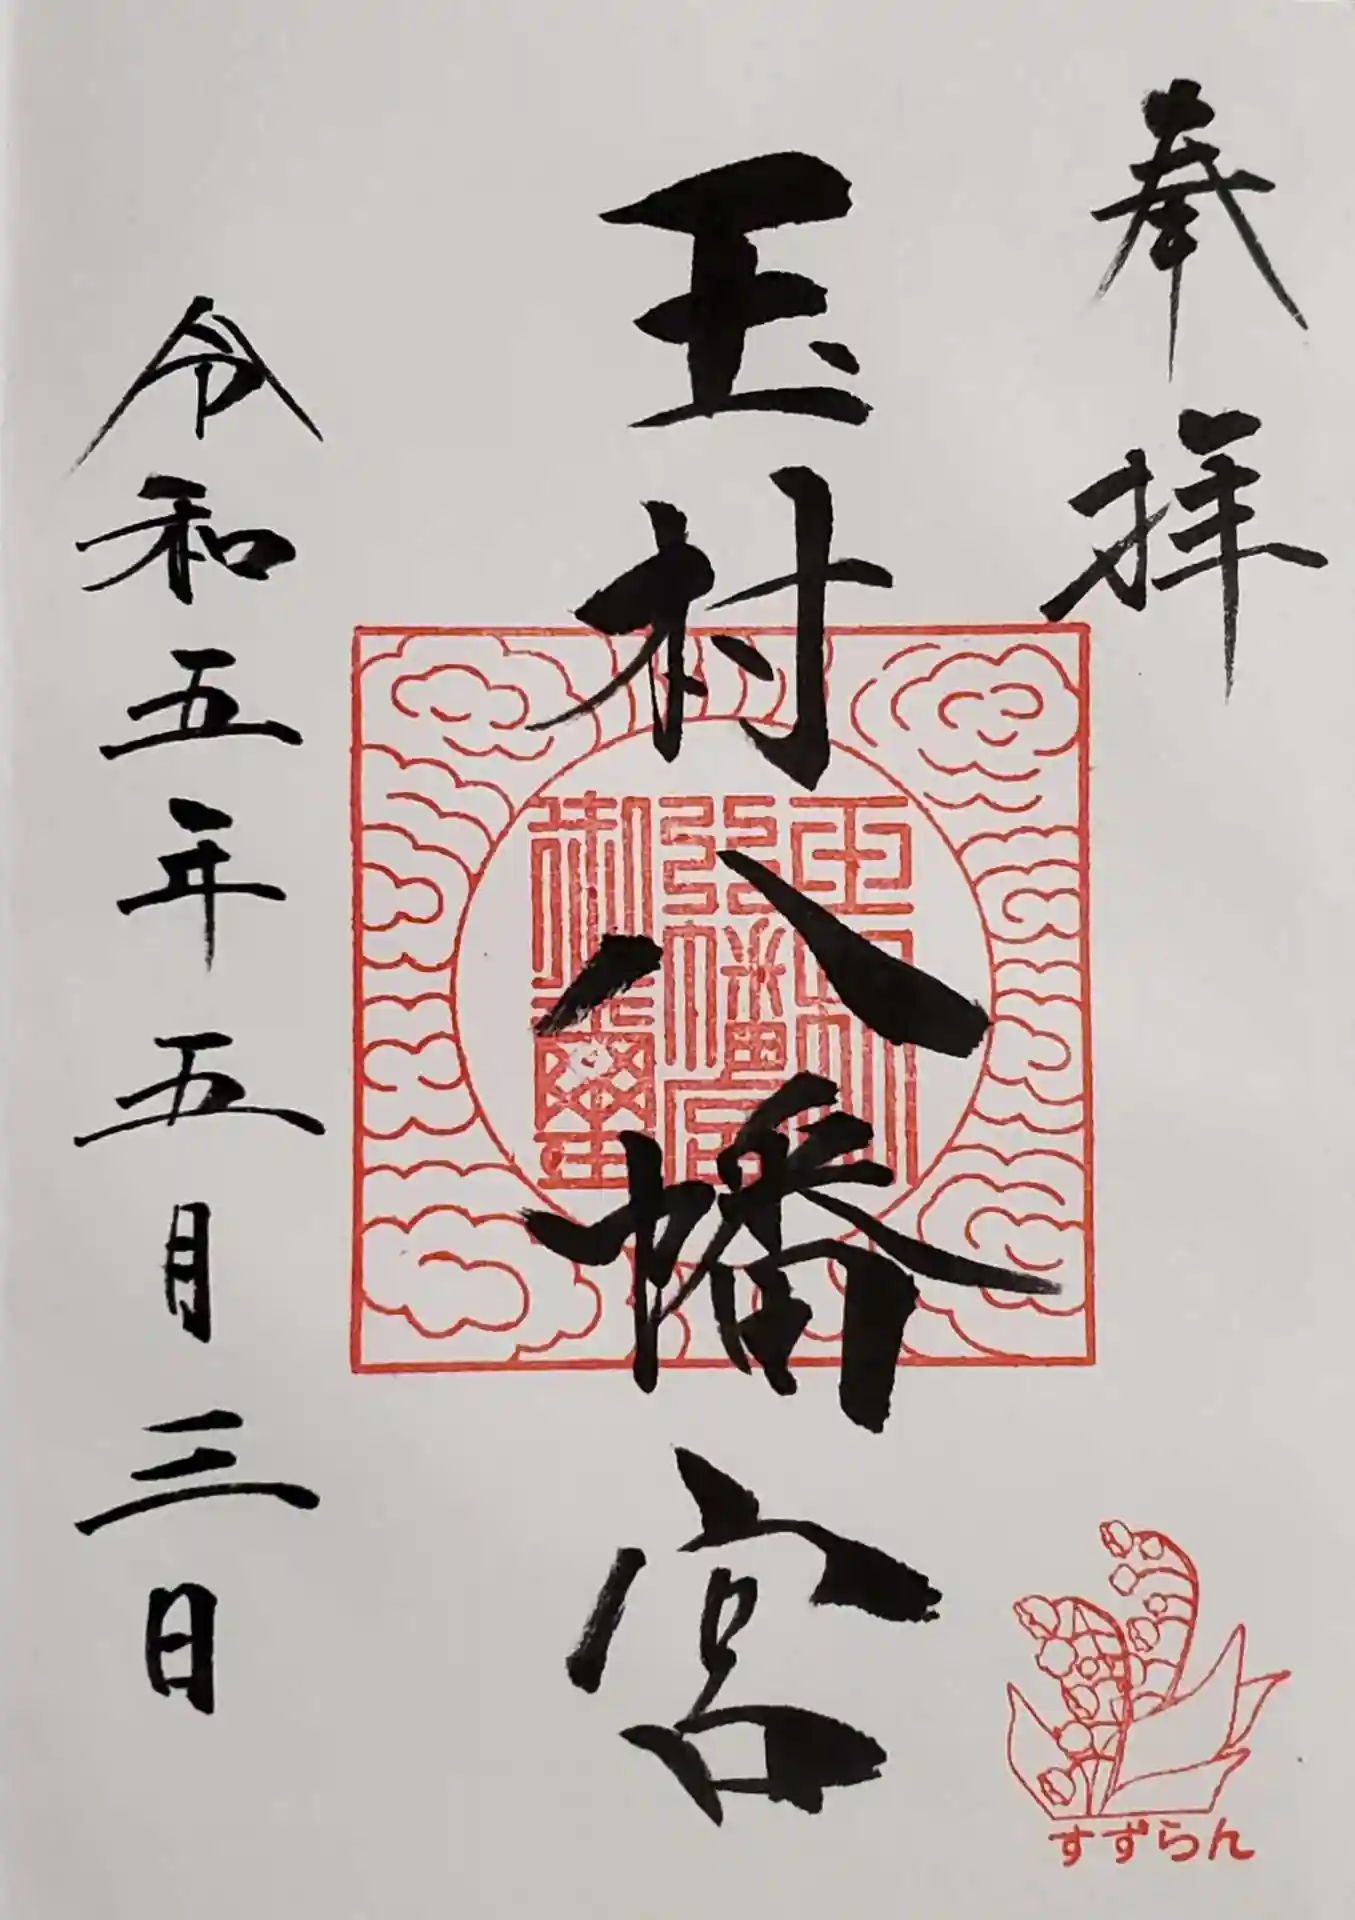 奉拝
玉村八幡宮
玉村
八幡宮
御璽
令和五年五月三日
すずらん